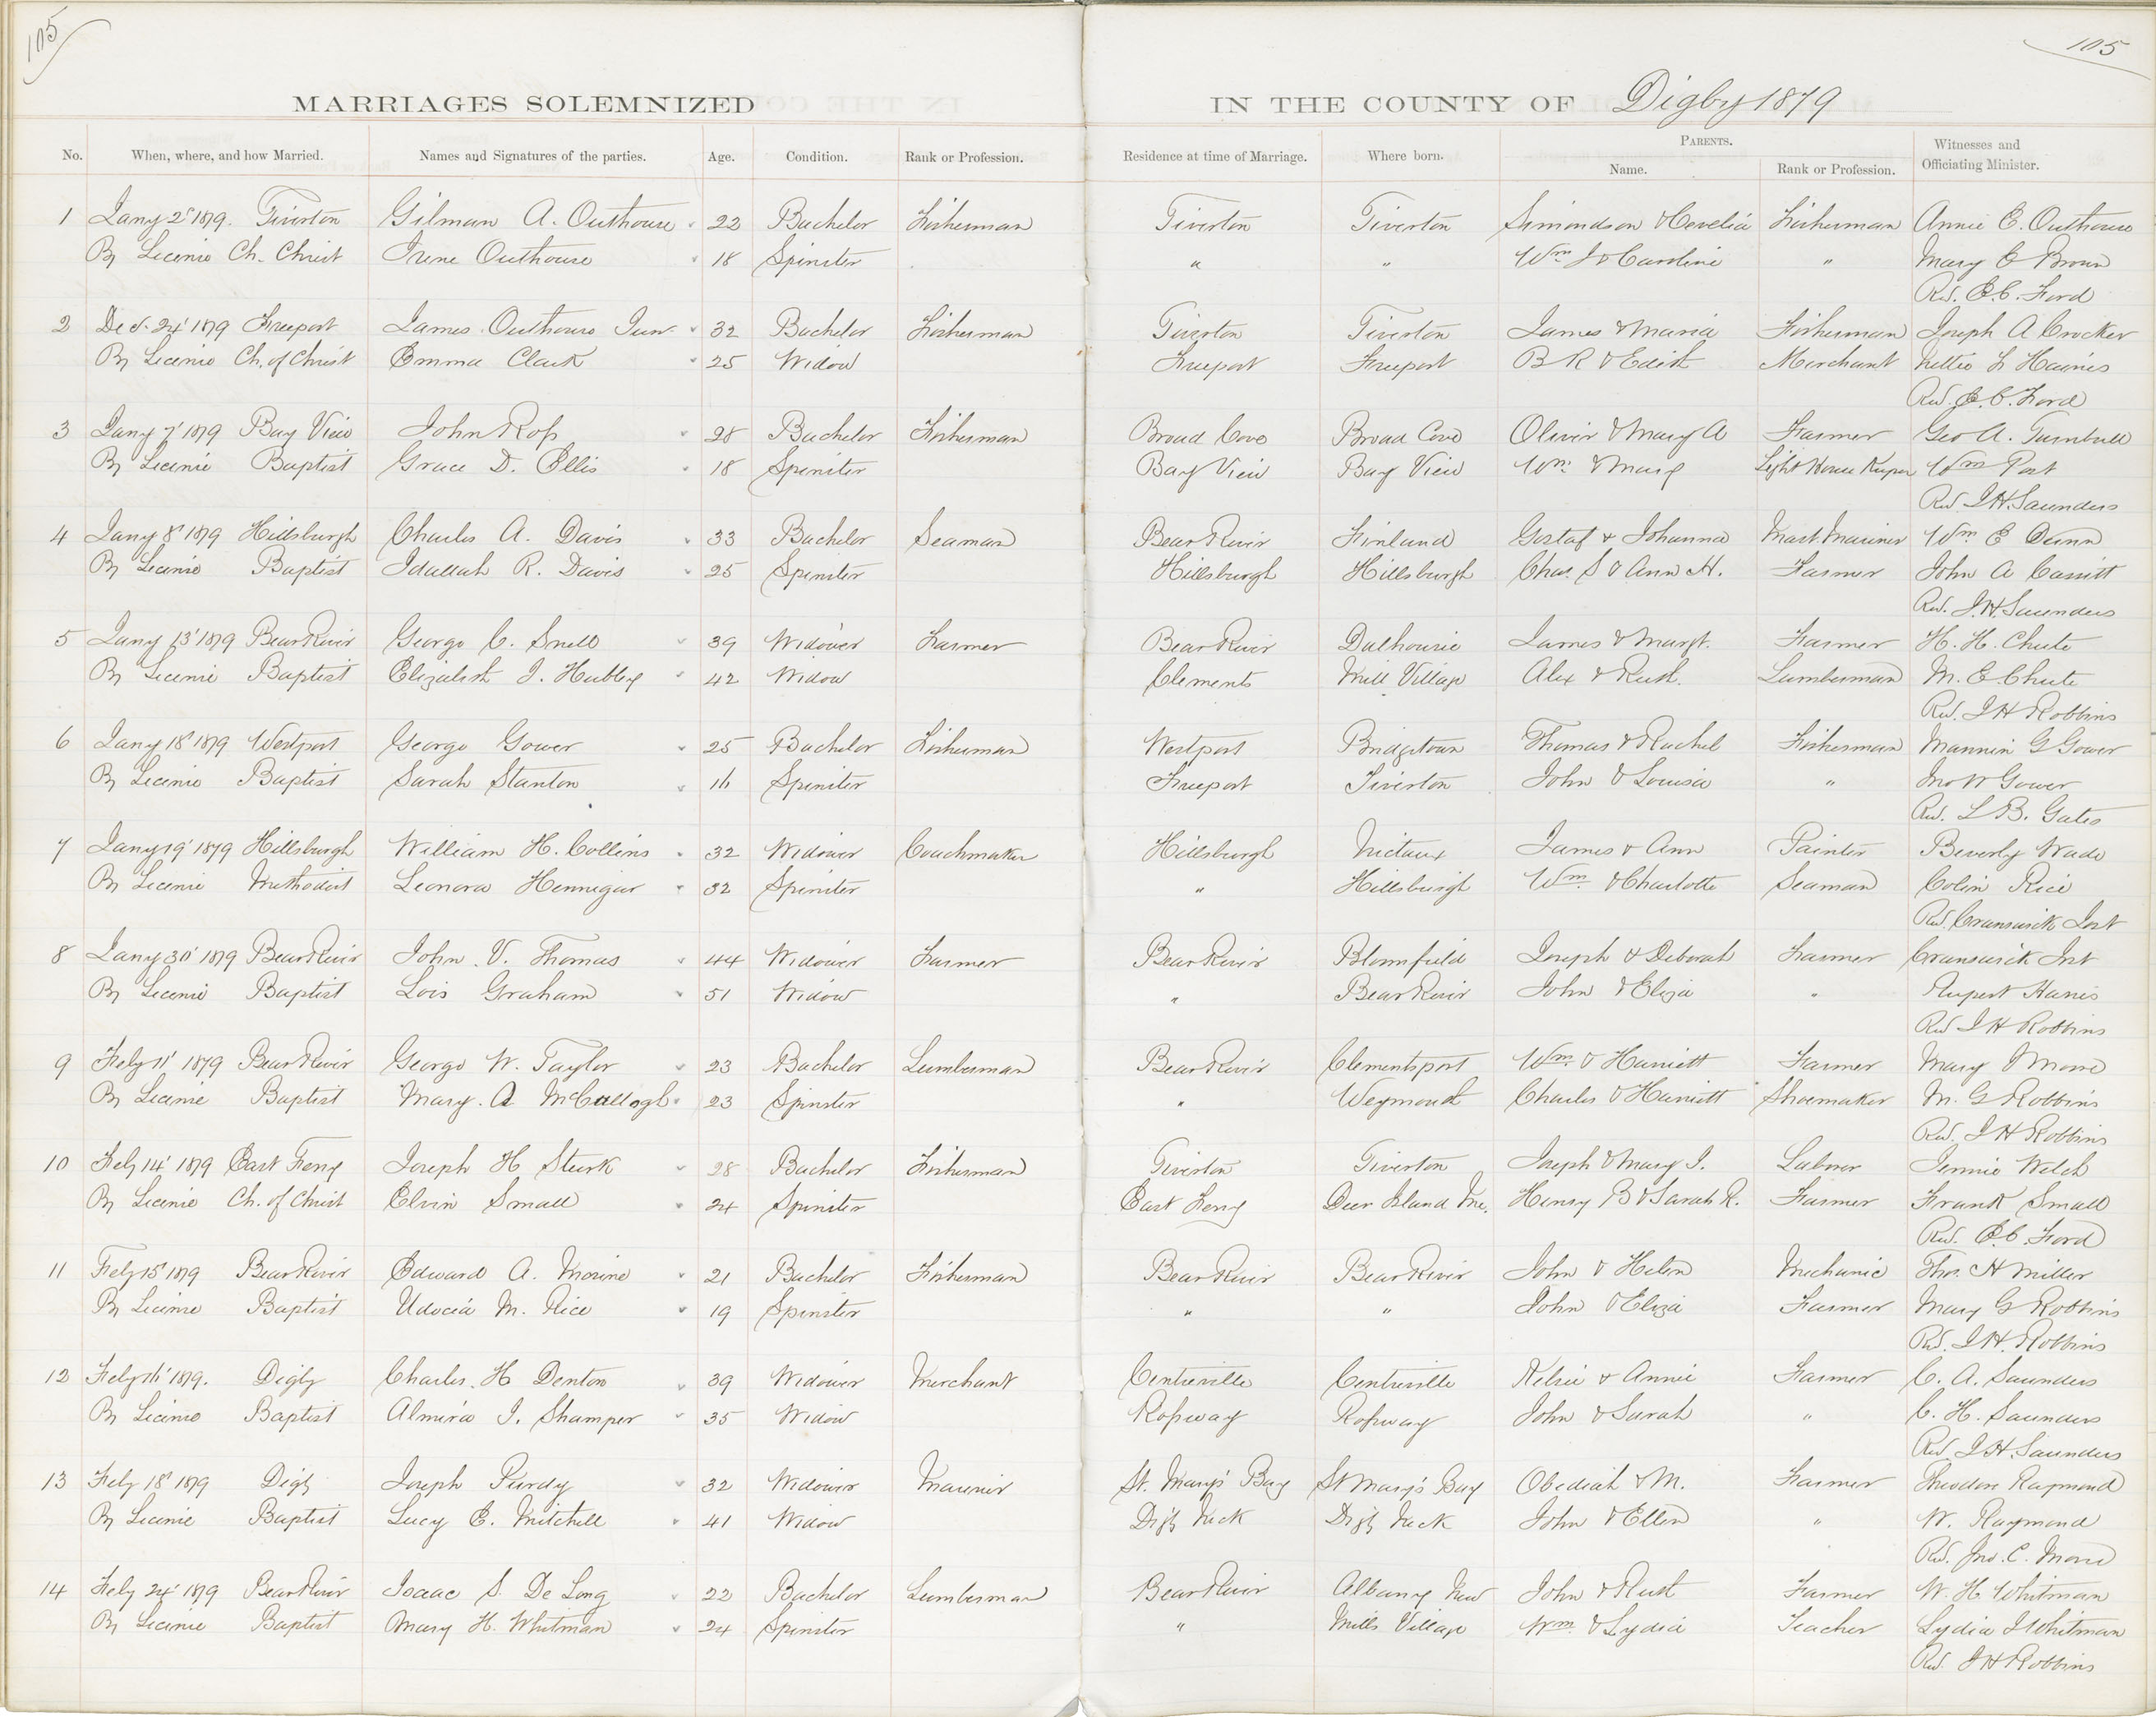 105
105
MARRIAGES SOLEMNIZED IN THE COUNTY OF Digby 1879
No. When, where, and how Married. Names and Signatures of the parties. Age. Condition. Rank or Profession. Residence at time of Marriage. Where born. PARENTS. Name. Rank or Profession. Witnesses and Officiating Minister.
1 Jany 2' 1879. Tiverton Gilman A. Outhouse 22 Bachelor Fisherman Tiverton Tiverton Simondson & Cevelia Fisherman Annie E. Outhouse
By Licence Ch. Christ Irene Outhouse 18 Spinster " " Wm J & Caroline " Mary E Brown
Rev. E.C. Ford
2 Dec. 24' 1879 Freeport James Outhouse Jun. 32 Bachelor Fisherman Tiverton Tiverton James & Maria Fisherman Joseph A Crocker
By Licence Ch. of Christ Emma Clark 25 Widow Freeport Freeport B R & Edith Merchant Nettie F Haines
Rev. E.C. Ford
3 Jany 7' 1879 Bay View John Ross 28 Bachelor Fisherman Broad Cove Broad Cove Oliver & Mary A Farmer Geo A. Turnbull
By Licence Baptist Grace D. Ellis 18 Spinster Bay View Bay View Wm. & Mary Light House Keeper Wm Post
Rev. J.H. Saunders
4 Jany 8' 1879 Hillsburgh Charles A. Davis 33 Bachelor Seaman Bear River Finland Gostaf & Johanna Mast. Mariner Wm E Dunn
By Licence Baptist Idallah R. Davis 25 Spinster Hillsburgh Hillsburgh Chas. S & Ann H. Farmer John A Cassitt
Rev. J.H. Saunders
5 Jany 13' 1879 Bear River George C. Snell 39 Widower Farmer Bear River Dalhousie James & Margt. Farmer H. H. Chute
By Licence Baptist Elizabeth J. Hubley 42 Widow Clements Mill Village Alex & Ruth. Lumberman M. E Chute
Rev. J H Robbins
6 Jany 18' 1879 Westport George Gower 25 Bachelor Fisherman Westport Bridgetown Thomas & Rachel Fisherman Mannin G Gower
By Licence Baptist Sarah Stanton 16 Spinster Freeport Tiverton John & Louisa " Jno W Gower
Rev. L B. Gates
7 Jany 19' 1879 Hillsburgh William H. Collins 32 Widower Coachmaker Hillsburgh Nictaux James & Ann Painter Beverly Wade
By Licence Methodist Leonora Hennigar 32 Spinster " Hillsburgh Wm. & Charlotte Seaman Colin Rice
Rev. Cranswick Jost
8 Jany 30' 1879 Bear River John V. Thomas 44 Widower Farmer Bear River Bloomfield Joseph & Deborah Farmer Cranswick Jost
By Licence Baptist Lois Graham 51 Widow " Bear River John & Eliza " Rupert Harris
Rev J H Robbins
9 Feby 11' 1879 Bear River George W. Taylor 23 Bachelor Lumberman Bear River Clementsport Wm. & Harriett Farmer Mary J Morse
By Licence Baptist Mary. A McCullogh 23 Spinster " Weymouth Charles & Harriett Shoemaker M. G Robbins
Rev. J H Robbins
10 Feby 14' 1879 East Ferry Joseph H Sturk 28 Bachelor Fisherman Tiverton Tiverton Joseph & Mary J. Laborer Jennie Welch
By Licence Ch. of Christ Elvin Small 24 Spinster East Ferry Deer Island Me. Henry B & Sarah R. Farmer Frank Small
Rev. E.C. Ford
11 Feby 15' 1879 Bear River Edward A. Morine 21 Bachelor Fisherman Bear River Bear River John & Helen Mechanic Thos. H Miller
By Licence Baptist Udocia M. Rice 19 Spinster " " John & Eliza Farmer Mary G Robbins
Rev. J.H. Robbins
12 Feby 16' 1879. Digby Charles. H Denton 39 Widower Merchant Centreville Centreville Kelsie & Annie Farmer C. A. Saunders
By Licence Baptist Almira J. Shamper 35 Widow Rossway Rossway John & Sarah " C. H. Saunders
Rev J.H. Saunders
13 Feby 18' 1879 Digby Joseph Purdy 32 Widower Mariner St. Mary's Bay St Mary's Bay Obediah & M. Farmer Theodore Raymond
By Licence Baptist Lucy E. Mitchell 41 Widow Digby Neck Digby Neck John & Ellen " W. Raymond
Rev. Jno. C. Morse
14 Feby 24' 1879 Bear River Isaac S. De Long 22 Bachelor Lumberman Bear River Albany New John & Ruth Farmer W. H. Whitman
By Licence Baptist Mary H. Whitman 24 Spinster " Mills Village Wm. & Lydia Teacher Lydia J Whitman
Rev. J H Robbins